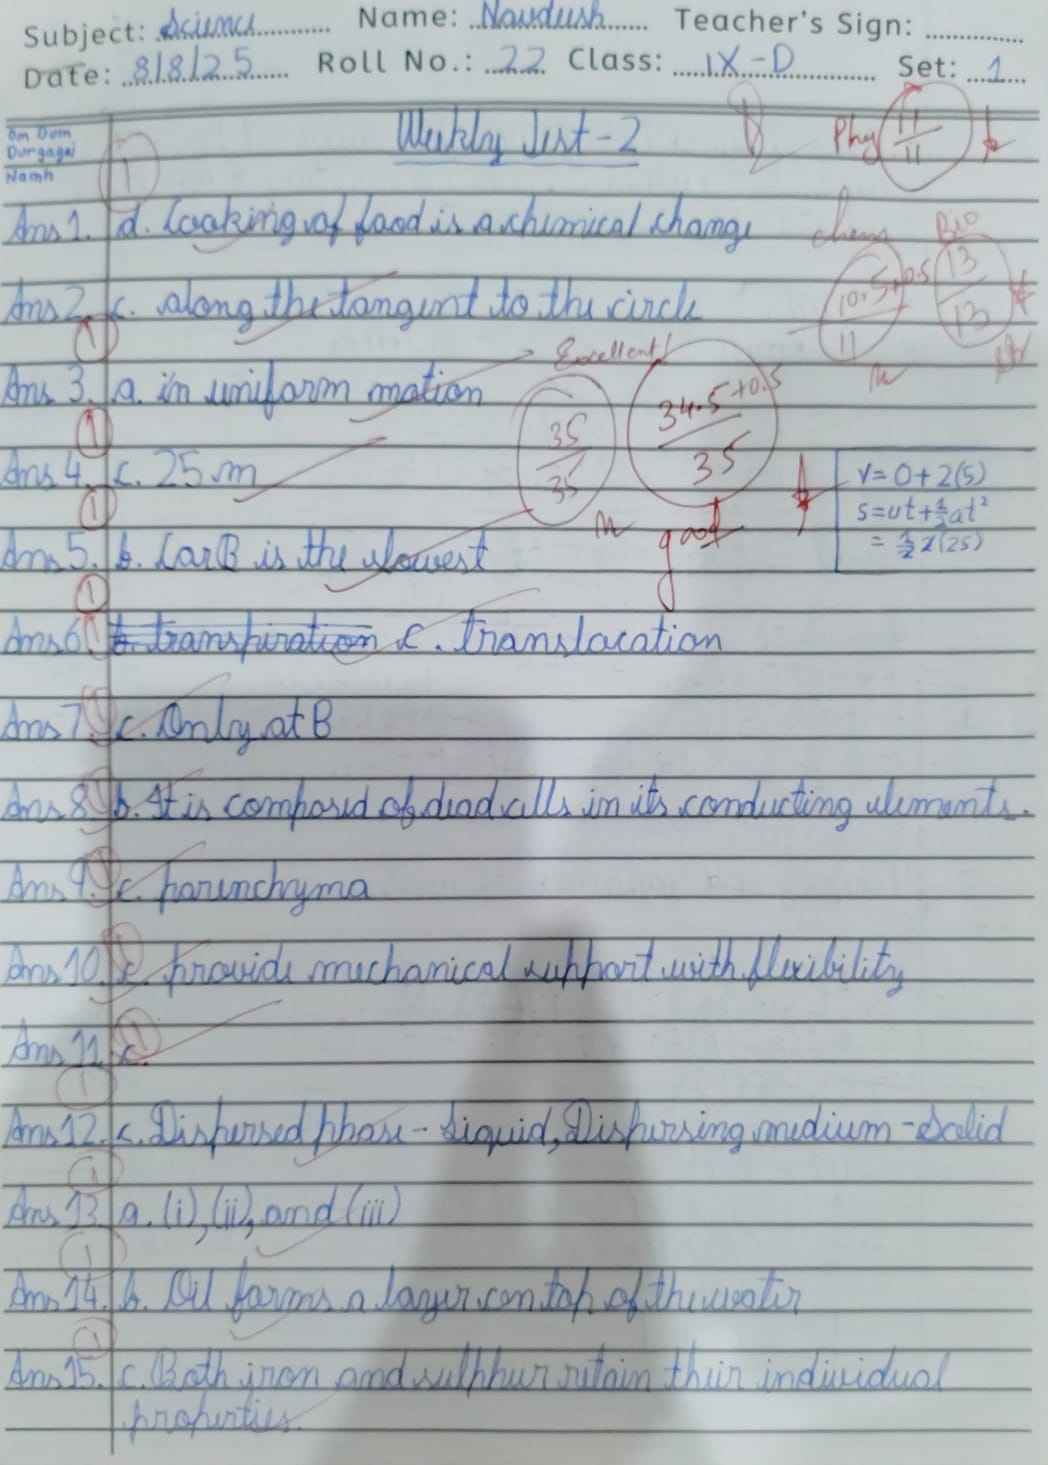 Subject: Science Name: Navdush Teacher's Sign:
Date: 8/8/25 Roll No.: 22 Class: IX-D Set: 1
Om Dum
Durgagai
Namh
Weekly Test-2
Phy 11/11
1
Ans 1. d. Cooking of food is a chemical change
chem Bio
10.5+0.5/11 13/13
Ans 2. c. along the tangent to the circle
1
Excellent!
Ans 3. a. in uniform motion
35/35 34.5+0.5/35
1
Ans 4. c. 25 m
V=0+2(5)
s=ut+½at²
= ½x(25)
1
good
Ans 5. b. Car B is the slowest
1
Ans 6. b. transpiration c. translocation
1
Ans 7. c. Only at B
1
Ans 8. b. It is composed of dead cells in its conducting elements.
1
Ans 9. c. parenchyma
1
Ans 10. c. provide mechanical support with flexibility
1
Ans 11. c.
1
1
Ans 12. c. Dispersed phase - Liquid, Dispersing medium - Solid
1
Ans 13. a. (i), (ii), and (iii)
1
Ans 14. b. Oil forms a layer on top of the water
1
Ans 15. c. Both iron and sulphur retain their individual
properties.